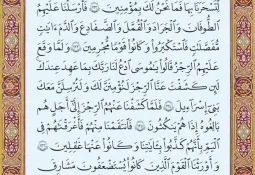 لِّتَسۡحَرَنَا بِهَا فَمَا نَحۡنُ لَكَ بِمُؤۡمِنِينَ ١٣٢ فَأَرۡسَلۡنَا عَلَيۡهِمُ
ٱلطُّوفَانَ وَٱلۡجَرَادَ وَٱلۡقُمَّلَ وَٱلضَّفَادِعَ وَٱلدَّمَ ءَايَٰتٖ
مُّفَصَّلَٰتٖ فَٱسۡتَكۡبَرُواْ وَكَانُواْ قَوۡمٗا مُّجۡرِمِينَ ١٣٣ وَلَمَّا وَقَعَ
عَلَيۡهِمُ ٱلرِّجۡزُ قَالُواْ يَٰمُوسَى ٱدۡعُ لَنَا رَبَّكَ بِمَا عَهِدَ عِندَكَۖ
لَئِن كَشَفۡتَ عَنَّا ٱلرِّجۡزَ لَنُؤۡمِنَنَّ لَكَ وَلَنُرۡسِلَنَّ مَعَكَ
بَنِيٓ إِسۡرَٰٓءِيلَ ١٣٤ فَلَمَّا كَشَفۡنَا عَنۡهُمُ ٱلرِّجۡزَ إِلَىٰٓ أَجَلٍ هُم
بَٰلِغُوهُ إِذَا هُمۡ يَنكُثُونَ ١٣٥ فَٱنتَقَمۡنَا مِنۡهُمۡ فَأَغۡرَقۡنَٰهُمۡ فِي
ٱلۡيَمِّ بِأَنَّهُمۡ كَذَّبُواْ بِـَٔايَٰتِنَا وَكَانُواْ عَنۡهَا غَٰفِلِينَ ١٣٦
وَأَوۡرَثۡنَا ٱلۡقَوۡمَ ٱلَّذِينَ كَانُواْ يُسۡتَضۡعَفُونَ مَشَٰرِقَ